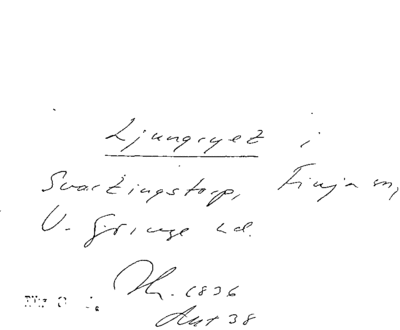 Ljungryet i
Svartingstorp, Finja sn,
V. Göinge hd.
1836
38